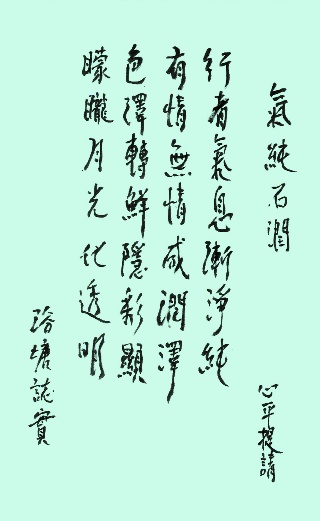 氣純石潤
心平提請
行者氣息漸淨純
有情無情咸潤澤
色澤轉鮮隱彩顯
曚曨月光化透明
塘誌實